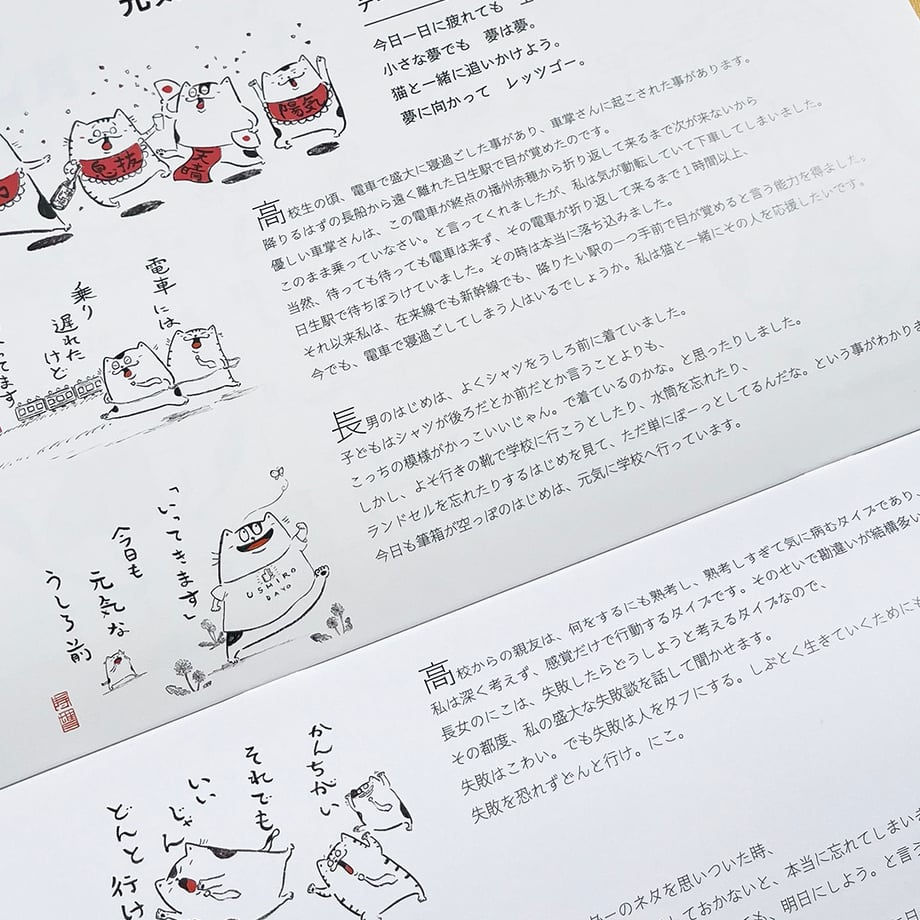 元気
今日一日に疲れても
小さな夢でも 夢は夢。
猫と一緒に追いかけよう。
夢に向かって レッツゴー。
息抜
天晴
陽気
高校生の頃、電車で盛大に寝過ごした事があり、車掌さんに起こされた事があります。
降りるはずの長船から遠く離れた日生駅で目が覚めたのです。
優しい車掌さんは、この電車が終点の播州赤穂から折り返して来るまで次が来ないから
このまま乗っていなさい。と言ってくれましたが、私は気が動転していて下車してしまいました。
当然、待っても待っても電車は来ず、その電車が折り返して来るまで1時間以上、
日生駅で待ちぼうけていました。その時は本当に落ち込みました。
それ以来私は、在来線でも新幹線でも、降りたい駅の一つ手前で目が覚めると言う能力を得ました。
今でも、電車で寝過ごしてしまう人はいるでしょうか。私は猫と一緒にその人を応援したいです。
電車には
乗り
遅れた
けど
ってます
長男のはじめは、よくシャツをうしろ前に着ていました。
子どもはシャツが後ろだとか前だとか言うことよりも、
こっちの模様がかっこいいじゃん。で着ているのかな。と思ったりしました。
しかし、よそ行きの靴で学校に行こうとしたり、水筒を忘れたり、
ランドセルを忘れたりするはじめを見て、ただ単にぼーっとしてるんだな。という事がわかりま
今日も筆箱が空っぽのはじめは、元気に学校へ行っています。
「いってきます」
今日も
元気な
うしろ前
USHIRO
DAYO
高校からの親友は、何をするにも熟考し、熟考しすぎて気に病むタイプであり、
私は深く考えず、感覚だけで行動するタイプです。そのせいで勘違いが結構多い
長女のにこは、失敗したらどうしようと考えるタイプなので、
その都度、私の盛大な失敗談を話して聞かせます。
失敗はこわい。でも失敗は人をタフにする。しぶとく生きていくためにも
失敗を恐れずどんと行け。にこ。
かんちがい
それでも
いい
じゃん
どんと行け
のネタを思いついた時、
しておかないと、本当に忘れてしまいま
も、明日にしよう。と言う